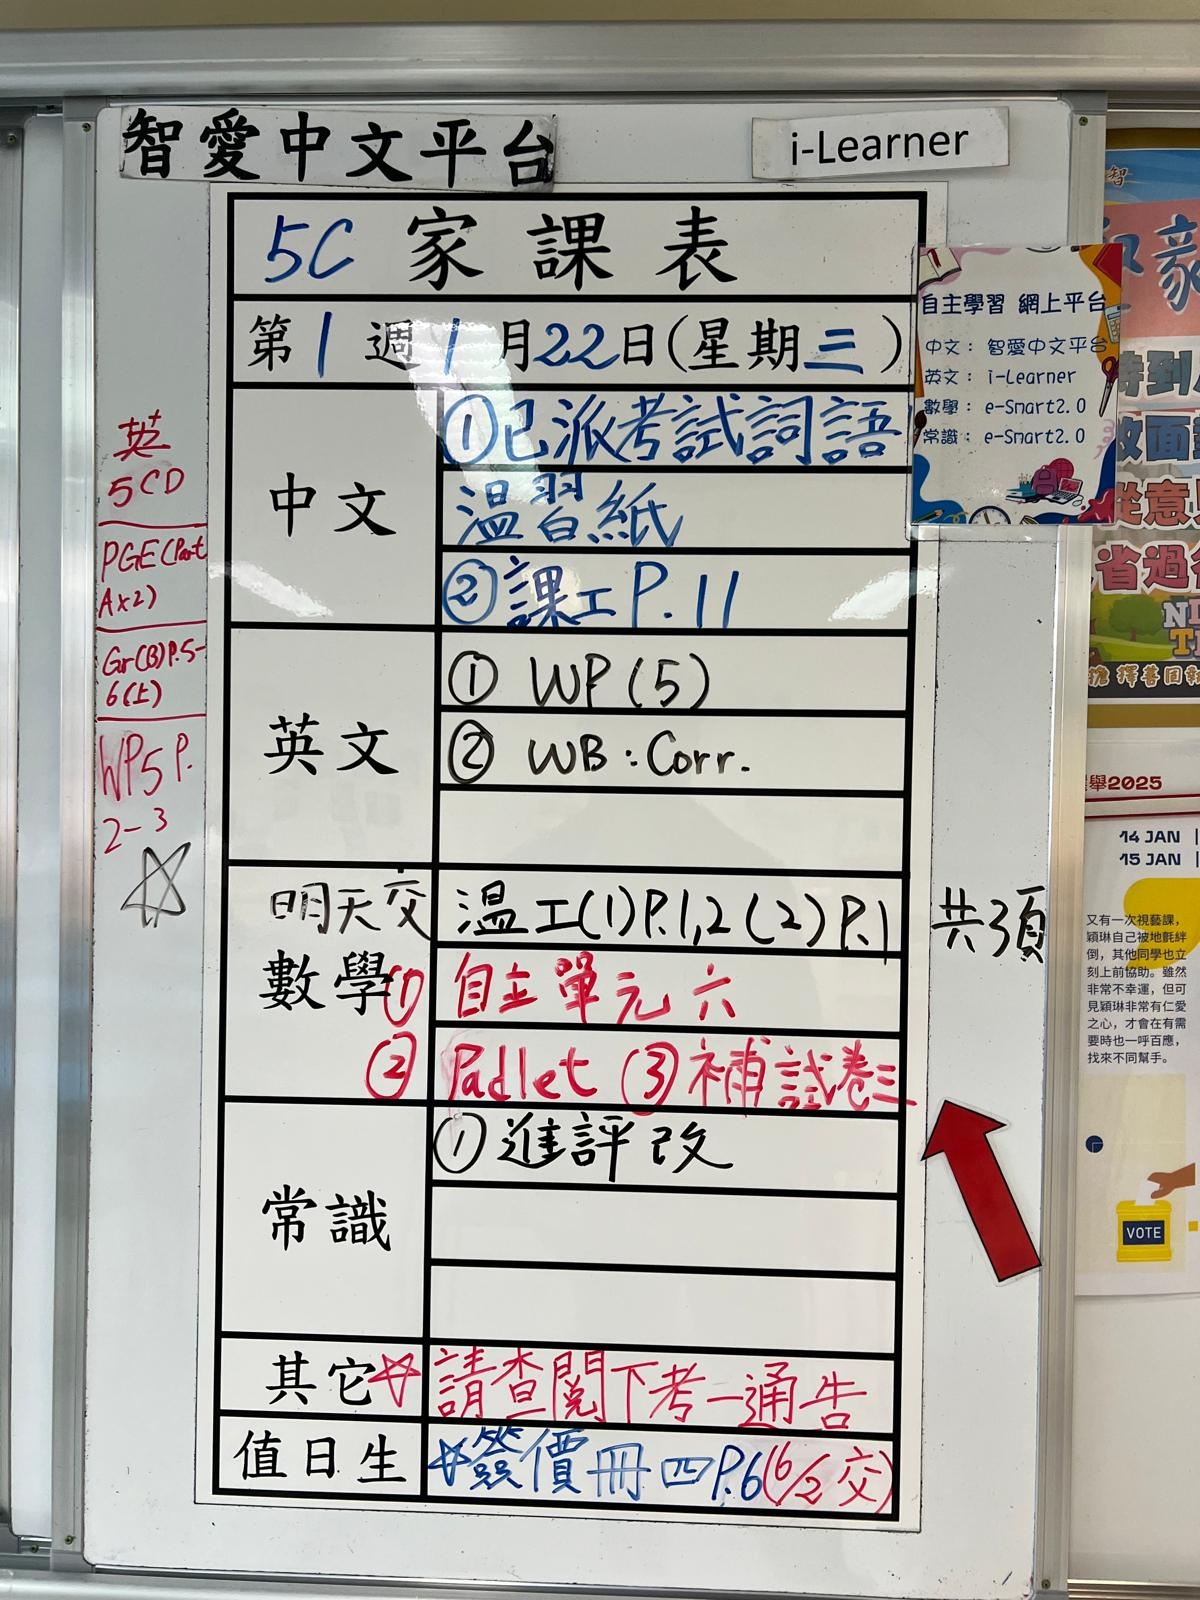 智愛中文平台
i-Learner
5C 家課表
第1週 1月22日(星期三)
中文
①已派考試詞語
溫習紙
②課工P.11
英文
① WP(5)
② WB:Corr.
明天交
溫工(1)P.1,2(2)P.1
共3項
數學
① 自主單元六
② Padlet ③補試卷三
常識
①進評改
其它
☆請查閱下考一通告
值日生
☆簽價冊四P.6(6/2交)
英
5CD
PGE(Part
Ax2)
Gr(B)P.5-
6(上)
WP5 P.
2-3
自主學習 網上平台
中文: 智愛中文平台
英文: i-Learner
數學: e-Smart2.0
常識: e-Smart2.0
NI
舉2025
14 JAN
15 JAN
又有一次視藝課,
穎琳自己被地氈絆
倒,其他同學也立
刻上前協助。雖然
非常不幸運,但可
見穎琳非常有仁愛
之心,才會在有需
要時也一呼百應,
找來不同幫手。
VOTE